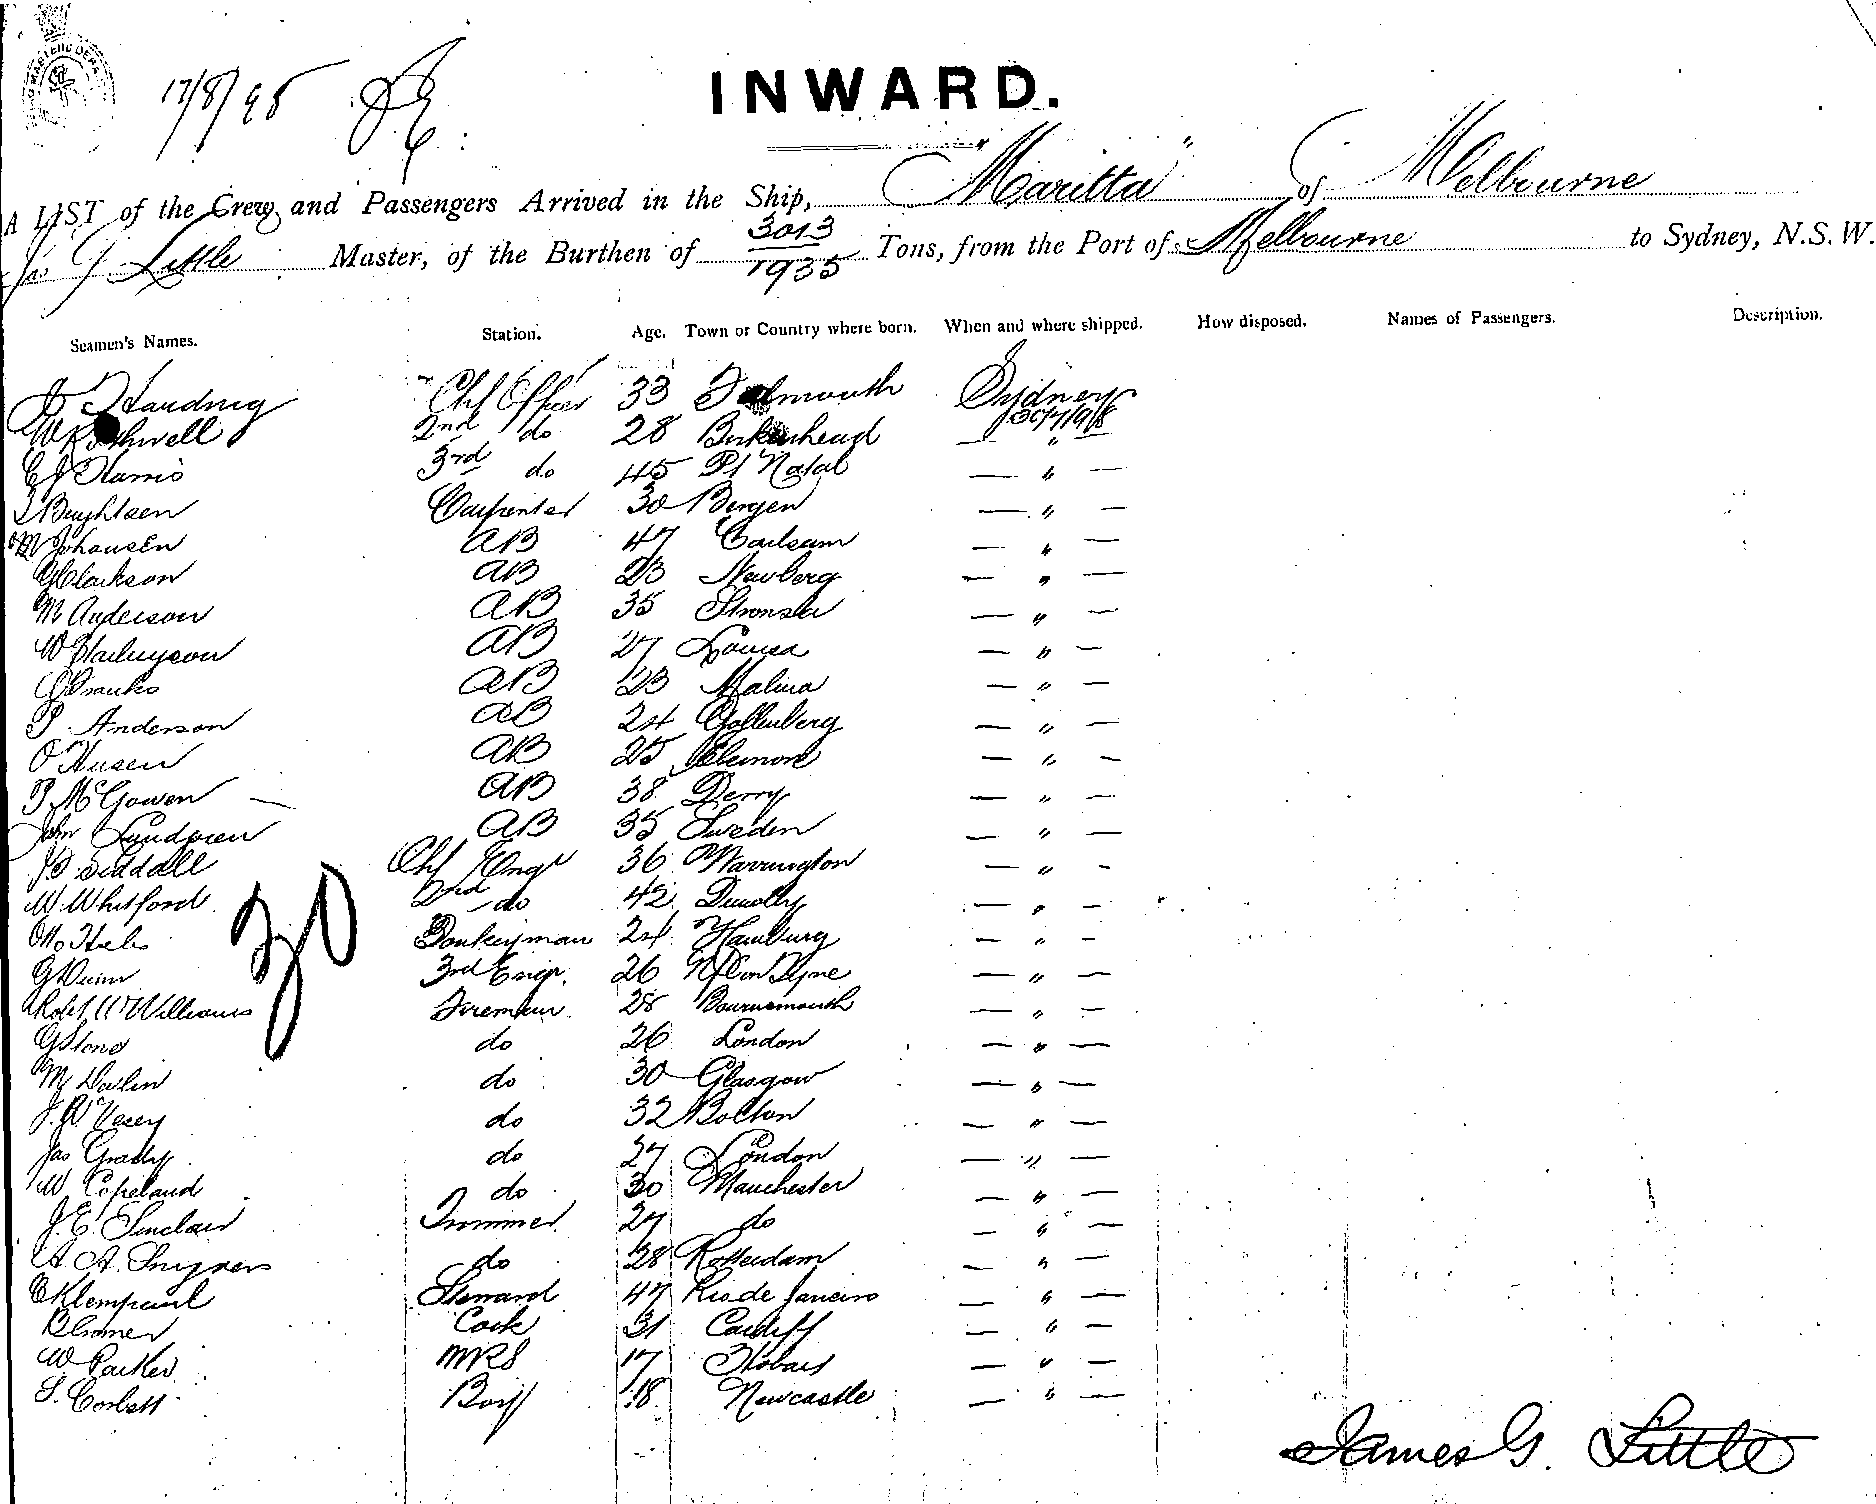 17/8/98
INWARD.
A LIST of the Crew and Passengers Arrived in the Ship, "Maritta" of Melbourne
Jas G Little Master, of the Burthen of 3013 / 1935 Tons, from the Port of Melbourne to Sydney, N.S.W.
Seamen's Names. Station. Age. Town or Country where born. When and where shipped. How disposed. Names of Passengers. Description.
Harding Chf Officer 33 Falmouth Sydney
W Rothwell 2nd do 28 Birkenhead — " —
Harris 3rd do 45 Pt Natal — " —
Carpenter 30 Bergen — " —
Johansen AB 47 — " —
G Clarkson AB 23 Newberg — " —
M Anderson AB 35 Stronsa — " —
W AB 27 Louisa — " —
Franks AB 23 Malina — " —
P Anderson AB 24 — " —
O AB 25 — " —
P McGowen — AB 38 Derry — " —
John Lundgren AB 35 Sweden — " —
Siddall Chf Engr 36 Warrington — " —
W Whitford 2nd do 42 Dunolly — " —
30
Otto Donkeyman 24 Hamburg — " —
G Quinn 3rd Engr. 26 N/C on Tyne — " —
Robt McWilliams Fireman 28 Bournemouth — " —
G Stone do 26 London — " —
M Devlin do 30 Glasgow — " —
J. W Vesey do 32 Bolton — " —
Jas Grady do 27 London — " —
W Copeland do 30 Manchester — " —
J. E. Sinclair Trimmer 27 do — " —
A. A. Snyders do 28 Rotterdam — " —
C Klempaul Steward 47 Rio de Janeiro — " —
Cook 31 Cardiff — " —
W Parker MRS 17 Hobart — " —
S. Corbett Boy 18 Newcastle — " —
James G. Little